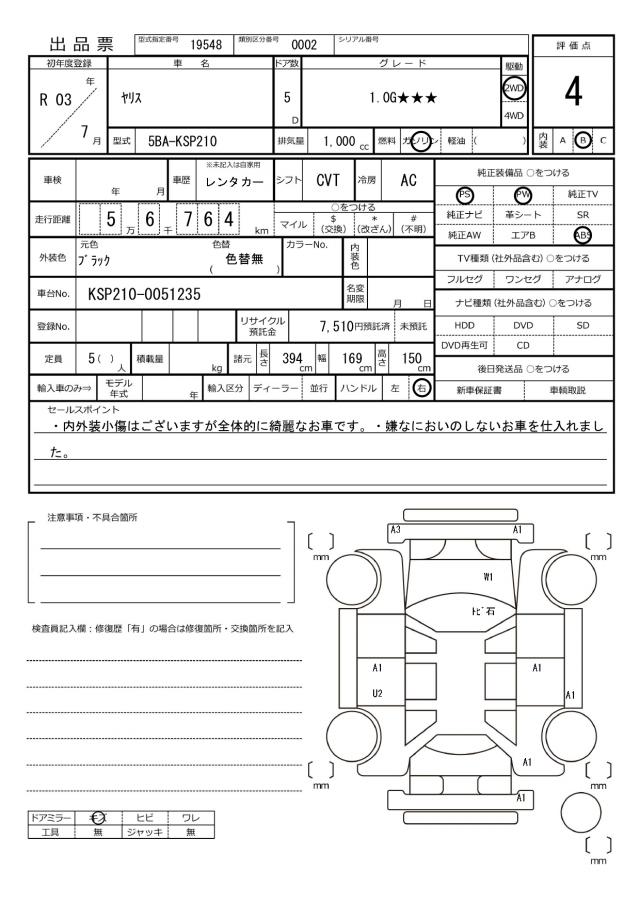 出品票
型式指定番号 19548 類別区分番号 0002 シリアル番号
評価点
4
初年度登録 車名 ドア数 グレード 駆動
R 03 年 7 月
ヤリス
5 D
1.0G★★★
2WD
4WD
型式 5BA-KSP210 排気量 1,000 cc 燃料 ガソリン 軽油 ( )
内装 A B C
車検 年 月 車歴 ※未記入は自家用 レンタカー シフト CVT 冷房 AC
走行距離 5 6 7 6 4 万 千 km
○をつける
マイル $(交換) *(改ざん) #(不明)
外装色 元色 ブラック 色替 ( 色替無 ) カラーNo. 内装色
車台No. KSP210-0051235 名変期限 月 日
登録No. リサイクル預託金 7,510円預託済 未預託
定員 5 ( ) 人 積載量 kg 諸元 長さ 394 cm 幅 169 cm 高さ 150 cm
輸入車のみ⇒ モデル年式 年 輸入区分 ディーラー 並行 ハンドル 左 右
純正装備品 ○をつける
PS PW 純正TV
純正ナビ 革シート SR
純正AW エアB ABS
TV種類 (社外品含む) ○をつける
フルセグ ワンセグ アナログ
ナビ種類 (社外品含む) ○をつける
HDD DVD SD
DVD再生可 CD
後日発送品 ○をつける
新車保証書 車輌取説
セールスポイント
・内外装小傷はございますが全体的に綺麗なお車です。・嫌なにおいのしないお車を仕入れまし
た。
注意事項・不具合箇所
検査員記入欄：修復歴「有」の場合は修復箇所・交換箇所を記入
ドアミラー キズ ヒビ ワレ
工具 無 ジャッキ 無
A3 A1
[ ] mm [ ] mm
W1
トビ石
A1 A1
U2 A1
A1
[ ] mm [ ] mm
A1
[ ] mm